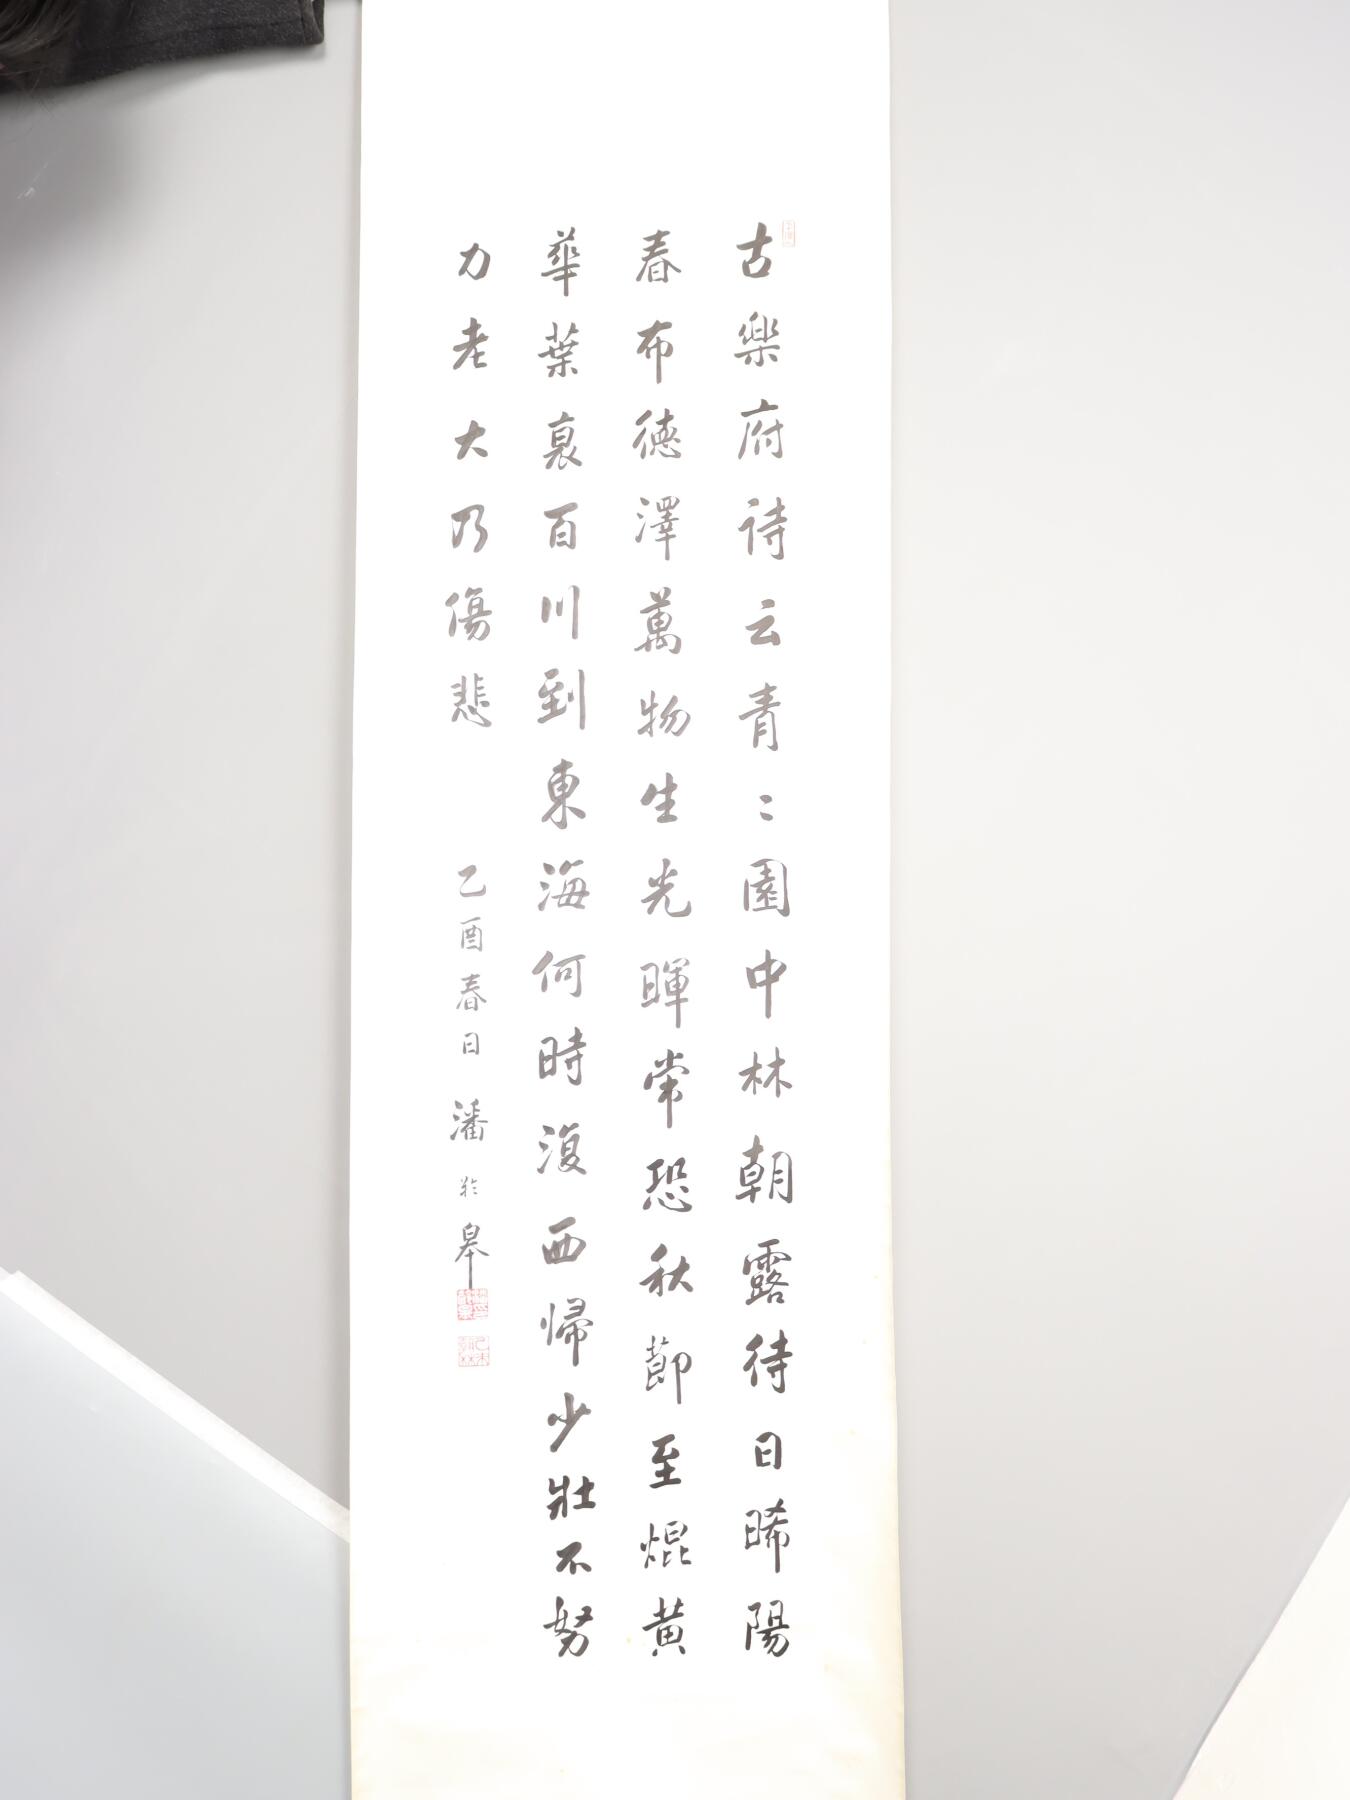 古樂府詩云青〻園中林朝露待日晞陽
春布德澤萬物生光暉常恐秋節至焜黄
華葉衰百川到東海何時復西歸少壯不努
力老大乃傷悲
乙酉春日潘於皋